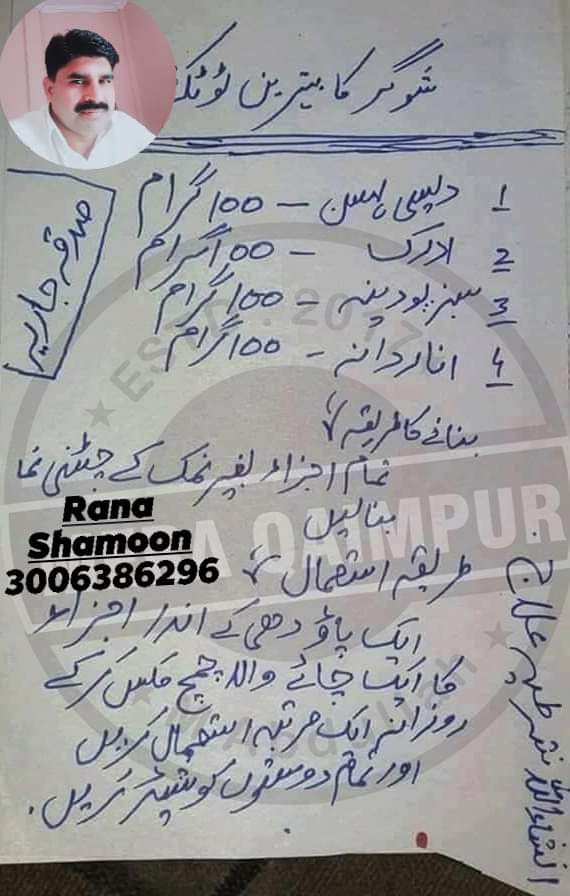 شوگر کا بہترین ٹوٹکہ
1 دیسی لہسن - 100 گرام
2 ادرک - 100 گرام
3 سبز پودینہ - 100 گرام
4 اناردانہ - 100 گرام
صدقہ جاریہ
بنانے کا طریقہ
تمام اجزاء بغیر نمک کے چٹنی نما
بنا لیں
طریقہ استعمال
ایک پاؤ دھی کے اندر اجزاء
کا ایک چائے والا چمچ مکس کر کے
روزانہ ایک مرتبہ استعمال کریں
اور تمام دوستوں کو شیئر کریں.
انشاءاللہ شرطیہ علاج
Rana
Shamoon
3006386296
ESTD. 2017
QAIMPUR